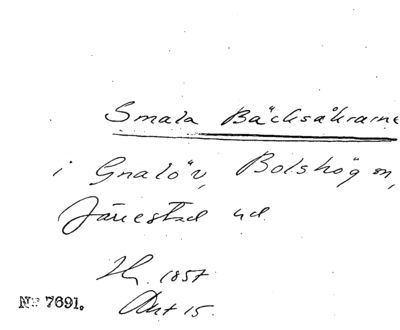 Smala Bäcksåkrarne
i Gnalöv, Bolshög sn,
Järrestad hd.
Hy. 1857
Akt 15.
No 7691.